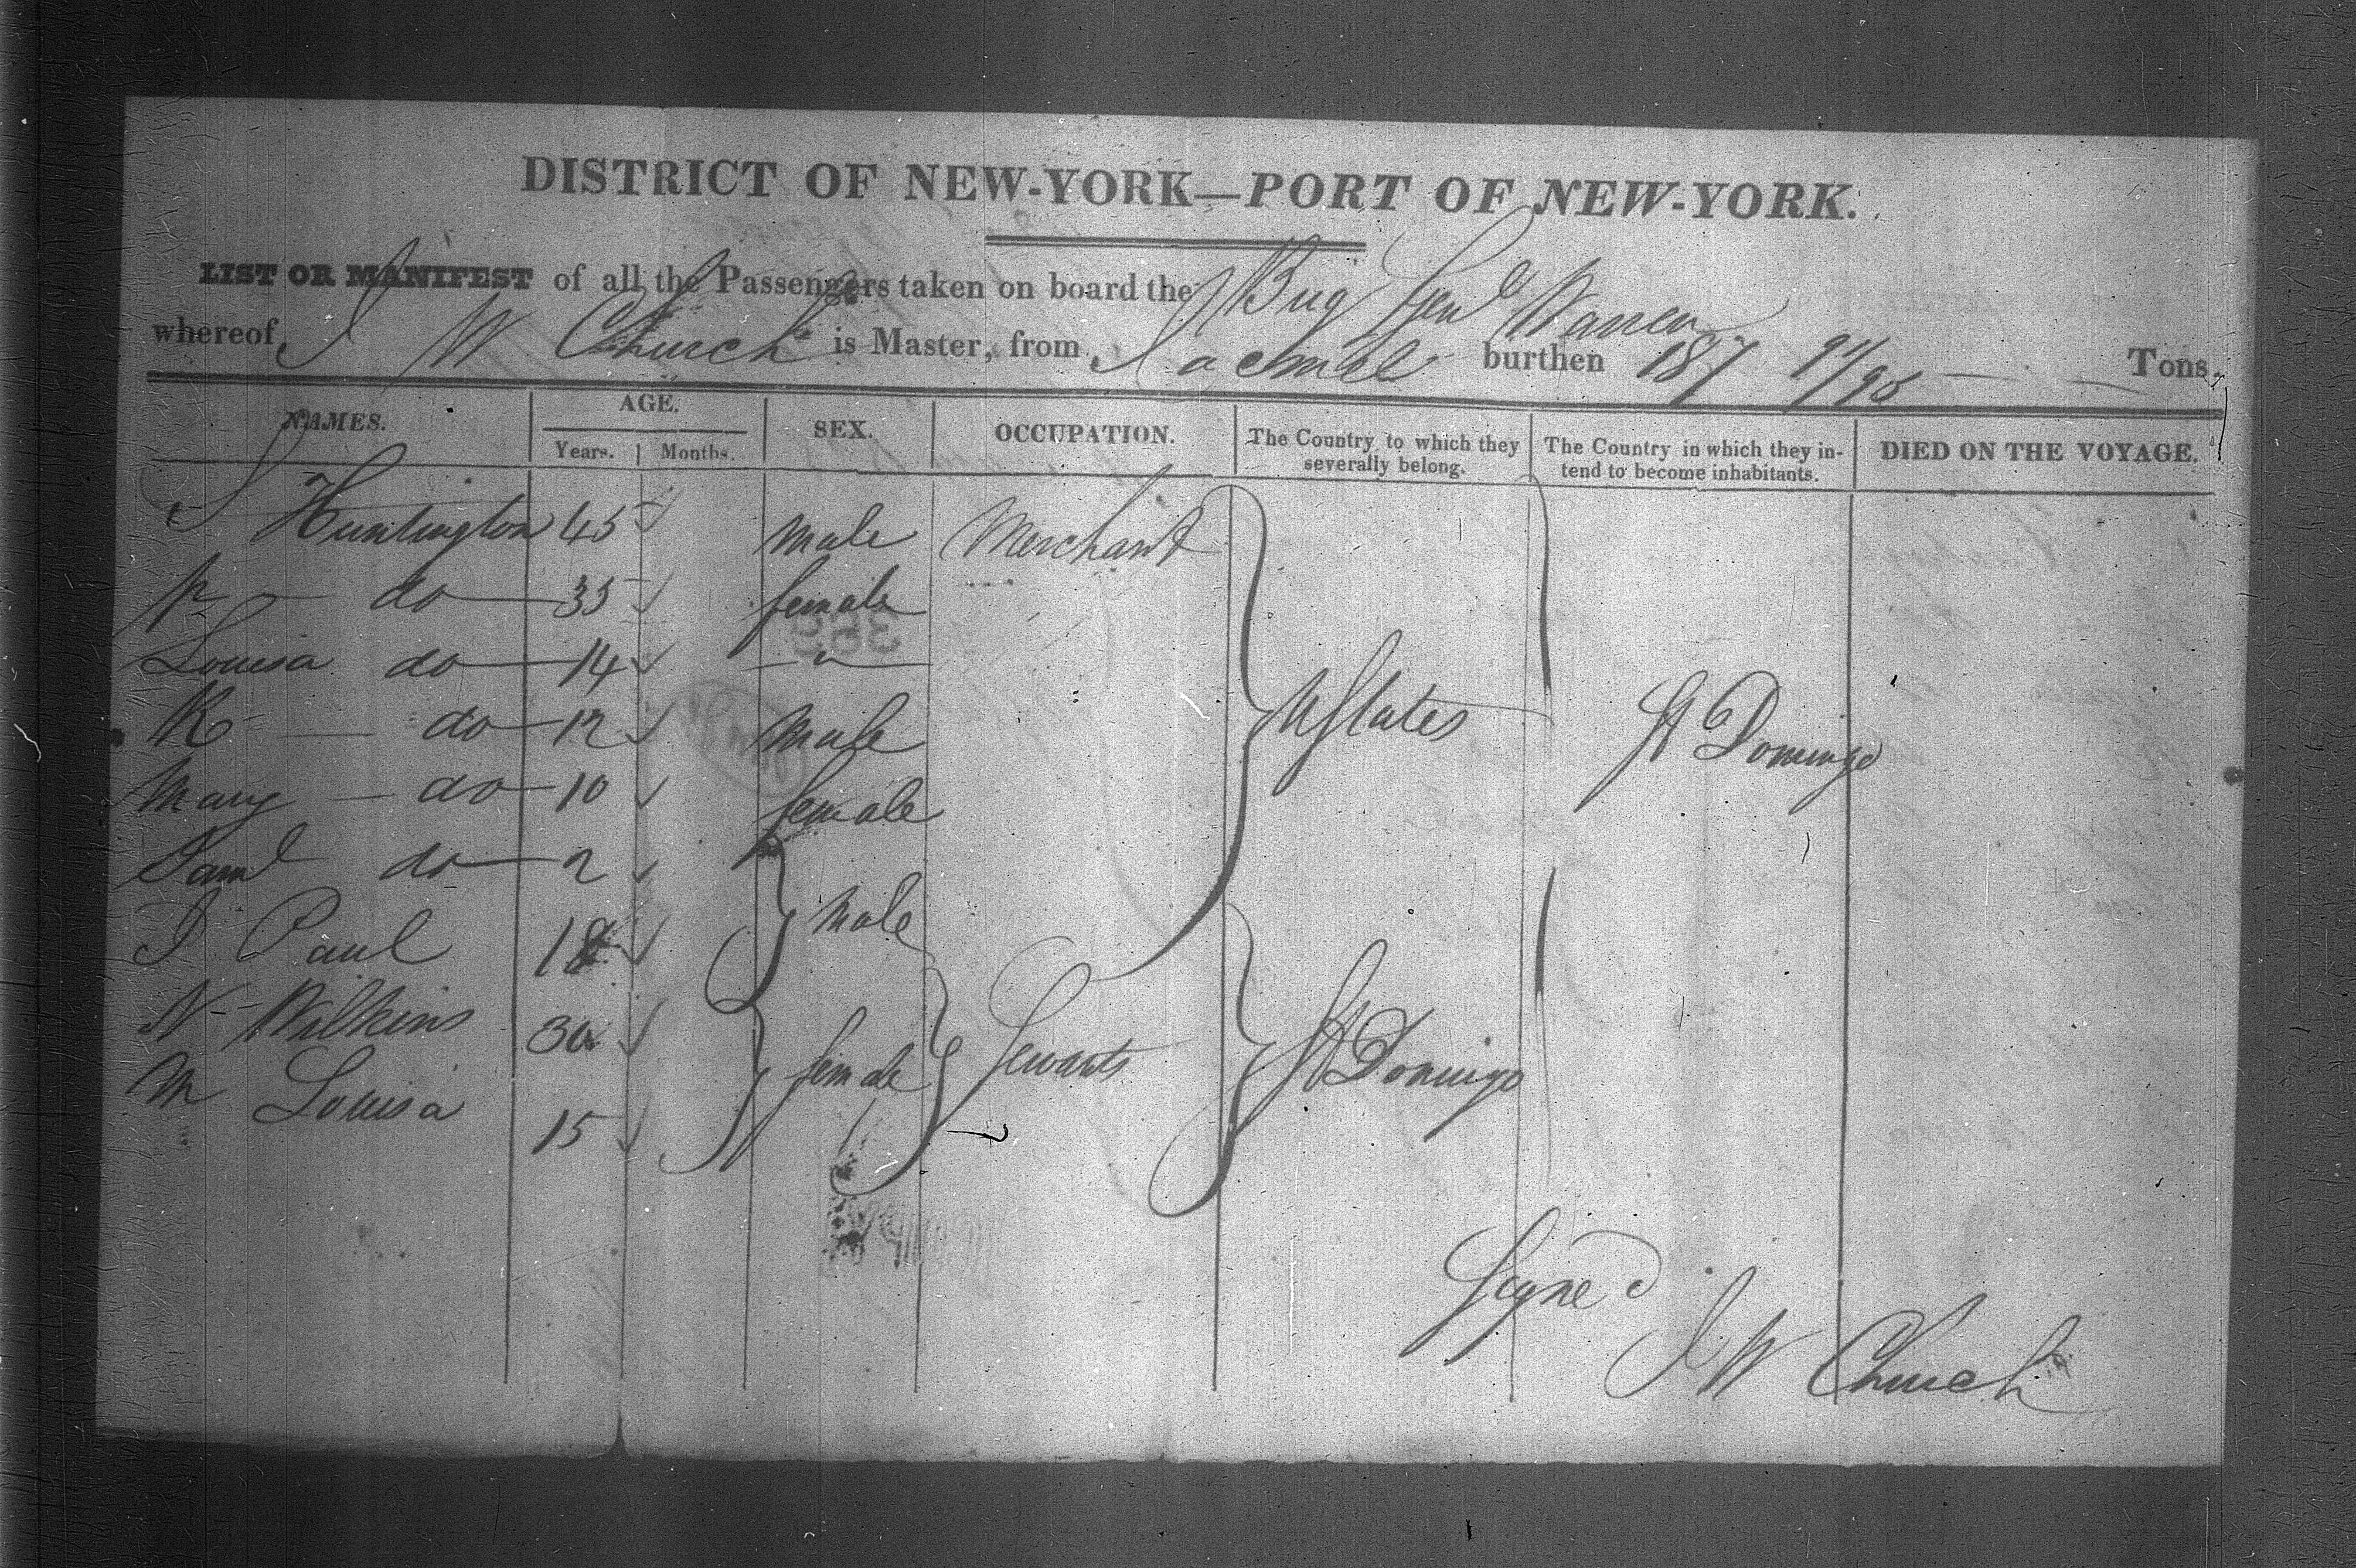 DISTRICT OF NEW-YORK—PORT OF NEW-YORK.
LIST OR MANIFEST of all the Passengers taken on board the Brig Genl Warren
whereof J W Church is Master, from Jacmel burthen 187 91/95 Tons.
NAMES. AGE. Years. Months. SEX. OCCUPATION. The Country to which they severally belong. The Country in which they intend to become inhabitants. DIED ON THE VOYAGE.
S Huntington 45 male Merchant
P do 35 female
Louisa do 14 "
R do 12 Male
Mary do 10 female
UStates St Domingo
Saml do 2
J Paul 18 Male
N Wilkins 30
M Louisa 15 female Servants St Domingo
Signed
J W Church